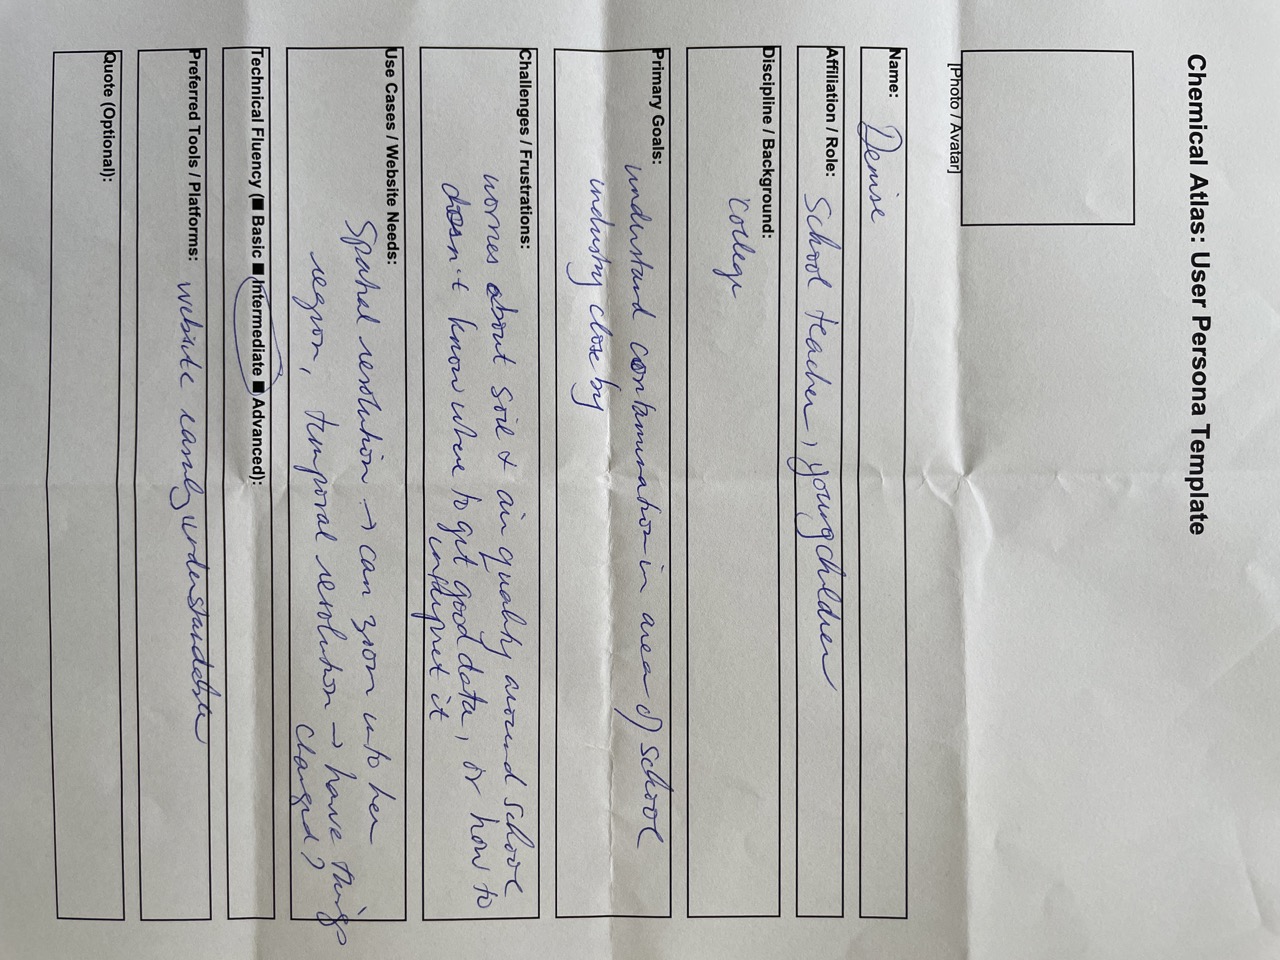 Chemical Atlas: User Persona Template
[Photo / Avatar]
Name: Denise
Affiliation / Role: School teacher, young children
Discipline / Background:
college
Primary Goals:
understand contamination in area of school
industry close by
Challenges / Frustrations:
worries about soil & air quality around school
doesn't know where to get good data, or how to
interpret it
Use Cases / Website Needs:
Spatial resolution → can zoom into her
region, temporal resolution → have things
changed?
Technical Fluency (■ Basic ■ Intermediate ■ Advanced):
Preferred Tools / Platforms: website easily understandable
Quote (Optional):